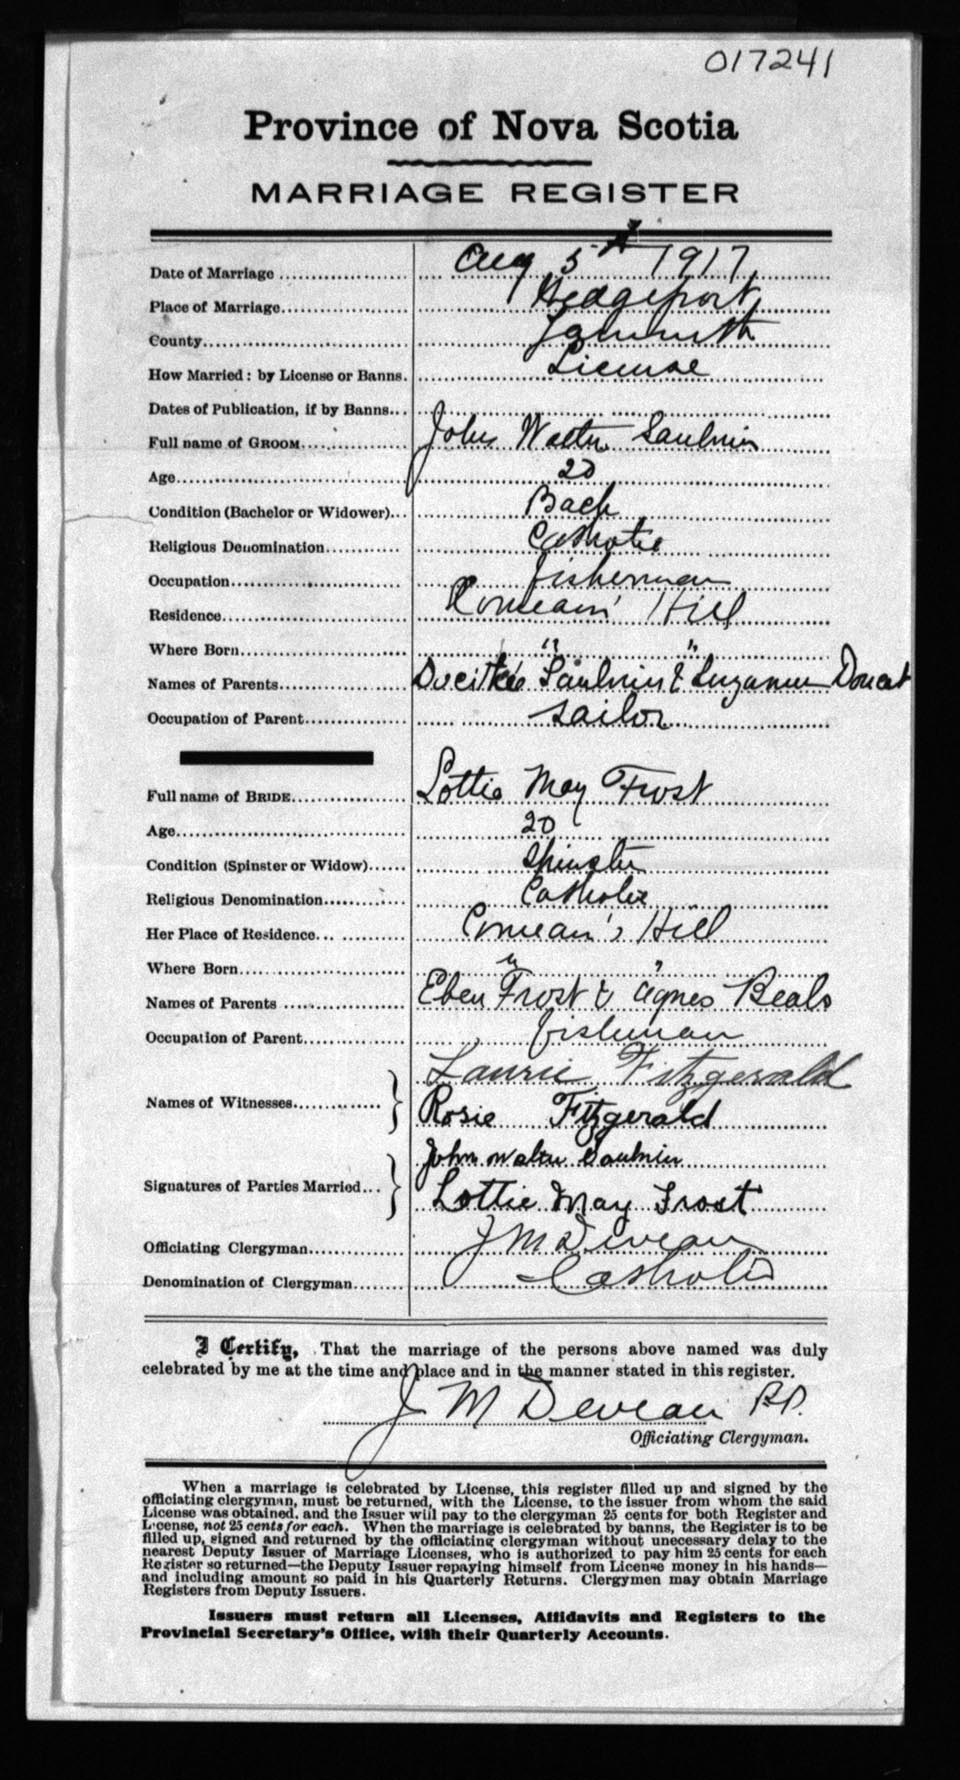 017241
Province of Nova Scotia
MARRIAGE REGISTER
Date of Marriage Aug 5th 1917
Place of Marriage Wedgeport
County Yarmouth
How Married: by License or Banns. License
Dates of Publication, if by Banns
Full name of GROOM John Walter Saulnier
Age 20
Condition (Bachelor or Widower) Bach
Religious Denomination Catholic
Occupation fisherman
Residence Comeau's Hill
Where Born " "
Names of Parents Saulnier & Suzanne Doucet
Occupation of Parent sailor
Full name of BRIDE Lottie May Frost
Age 20
Condition (Spinster or Widow) Spinster
Religious Denomination Catholic
Her Place of Residence Comeau's Hill
Where Born " "
Names of Parents Eben Frost & Agnes Beals
Occupation of Parent fisherman
Laurie Fitzgerald
Names of Witnesses } Rosie Fitzgerald
John Walter Saulnier
Signatures of Parties Married } Lottie May Frost
Officiating Clergyman J M Deveau
Denomination of Clergyman Catholic
I Certify, That the marriage of the persons above named was duly
celebrated by me at the time and place and in the manner stated in this register.
J M Deveau P.P.
Officiating Clergyman.
When a marriage is celebrated by License, this register filled up and signed by the
officiating clergyman, must be returned, with the License, to the issuer from whom the said
License was obtained, and the Issuer will pay to the clergyman 25 cents for both Register and
License, not 25 cents for each. When the marriage is celebrated by banns, the Register is to be
filled up, signed and returned by the officiating clergyman without unnecessary delay to the
nearest Deputy Issuer of Marriage Licenses, who is authorized to pay him 25 cents for each
Register so returned—the Deputy Issuer repaying himself from License money in his hands—
and including amount so paid in his Quarterly Returns. Clergymen may obtain Marriage
Registers from Deputy Issuers.
Issuers must return all Licenses, Affidavits and Registers to the
Provincial Secretary's Office, with their Quarterly Accounts.